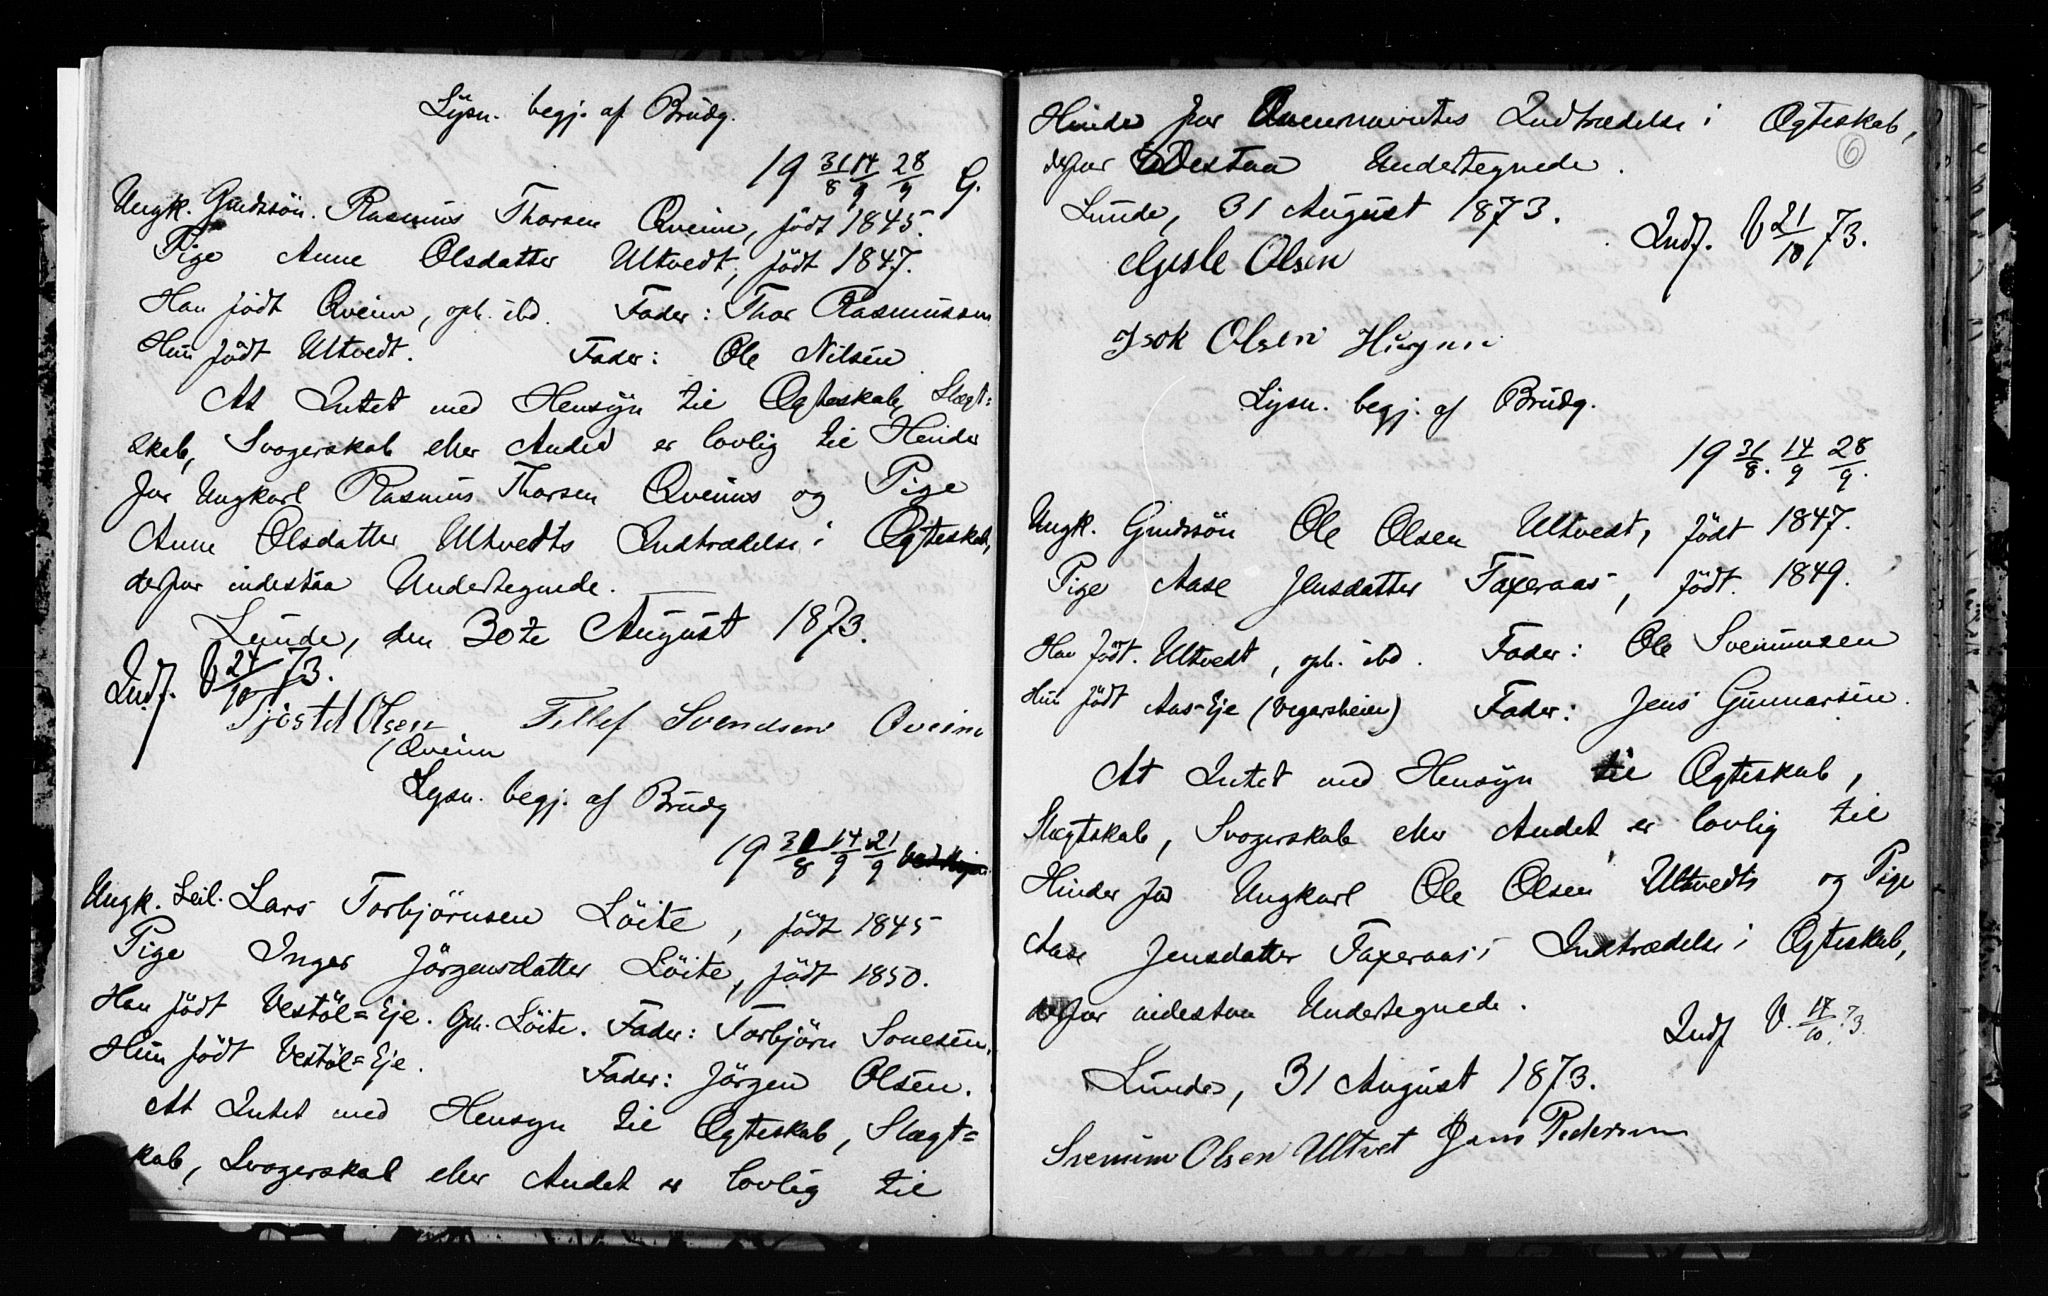 Lysn. begj. af Brudg.
19 31/8 14/9 28/9 G.
Ungk. Gmdssön. Rasmus Thorsen Qveim, födt 1845.
Pige Anne Olsdatter Ultvedt, födt 1847.
Han födt Qveim, oph. ibd. Fader: Thor Rasmussen
Hun födt Ultvedt. Fader: Ole Nilsen
At Intet med Hensyn til Ogteskab, Slægt=
skab, Svogerskab eller Andet er lovlig til Hinder
for Ungkarl Rasmus Thorsen Qveims og Pige
Anne Olsdatter Ultvedts Indtrædelse i Ogteskab,
derfor indestaa Undertegnede.
Lunde, den 30te August 1873.
Indf. V 24/10 73.
Tjöstel Olsen Tellef Svendsen Qveim
(Qveim
Lysn. begj. af Brudg
19 31/8 14/9 21/9
Ungk. Leil. Lars Torbjörnsen Löite, födt 1845
Pige Inger Jörgensdatter Löite, födt 1850.
Han födt Vestöl=Eje. Oph. Löite. Fader: Torbjörn Sonesen.
Hun födt Vestöl=Eje. Fader: Jörgen Olsen.
At Intet med Hensyn til Ogteskab, Slægt=
skab, Svogerskab eller Andet er lovlig til
Hinder for Indtrædelse i Ogteskab,
derfor indestaa Undertegnede.
6
Lunde, 31 August 1873.
Indf. V 21/10 73.
Gjesle Olsen
Isak Olsen
Lysn. begj. af Brudg.
19 31/8. 14/9 28/9.
Ungk. Gmdssön Ole Olsen Ultvedt, födt 1847.
Pige Aase Jensdatter Faxeraas, födt. 1849.
Han födt. Ultvedt, oph. ibd. Fader: Ole Svenumsen
Hun födt Aas=Eje (Vegarsheien) Fader: Jens Gunnarsen.
At Intet med Hensyn til Ogteskab,
Slægtskab, Svogerskab eller Andet er lovlig til
Hinder for Ungkarl Ole Olsen Ultvedts og Pige
Aase Jensdatter Faxeraas's Indtrædelse i Ogteskab,
derfor indestaa Undertegnede.
Indf V. 17/10. 73.
Lunde, 31 August 1873.
Svenum Olsen Ultvet Jens Pedersen